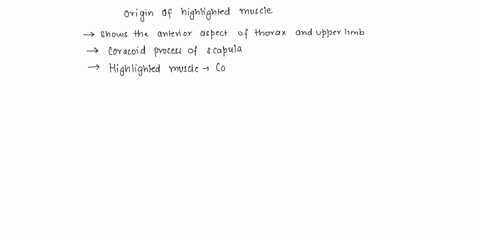 Origin of highlighted muscle
→ shows the anterior aspect of thorax and upper limb
→ Coracoid process of scapula
→ Highlighted muscle → Co